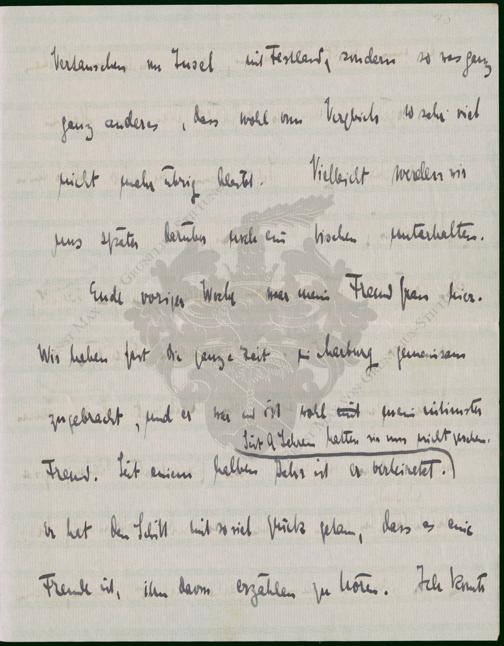 Vertauschen von Insel mit Festland, sondern so was ganz
ganz anderes, dass wohl vom Vergleich so sehr viel
nicht mehr übrig bleibt. Vielleicht werden wir
uns später darüber noch ein bischen unterhalten.
Ende voriger Woche war mein Freund hier.
Wir haben fast die ganze Zeit in gemeinsam
zugebracht, und er war und ist wohl mit mein intimster
Seit 9 Jahren hatten wir uns nicht gesehen.
Freund. Seit einem halben Jahr ist er verheiratet.)
Er hat den Schritt mit so viel Glück getan, dass es eine
Freude ist, ihn davon erzählen zu hören. Ich konnte